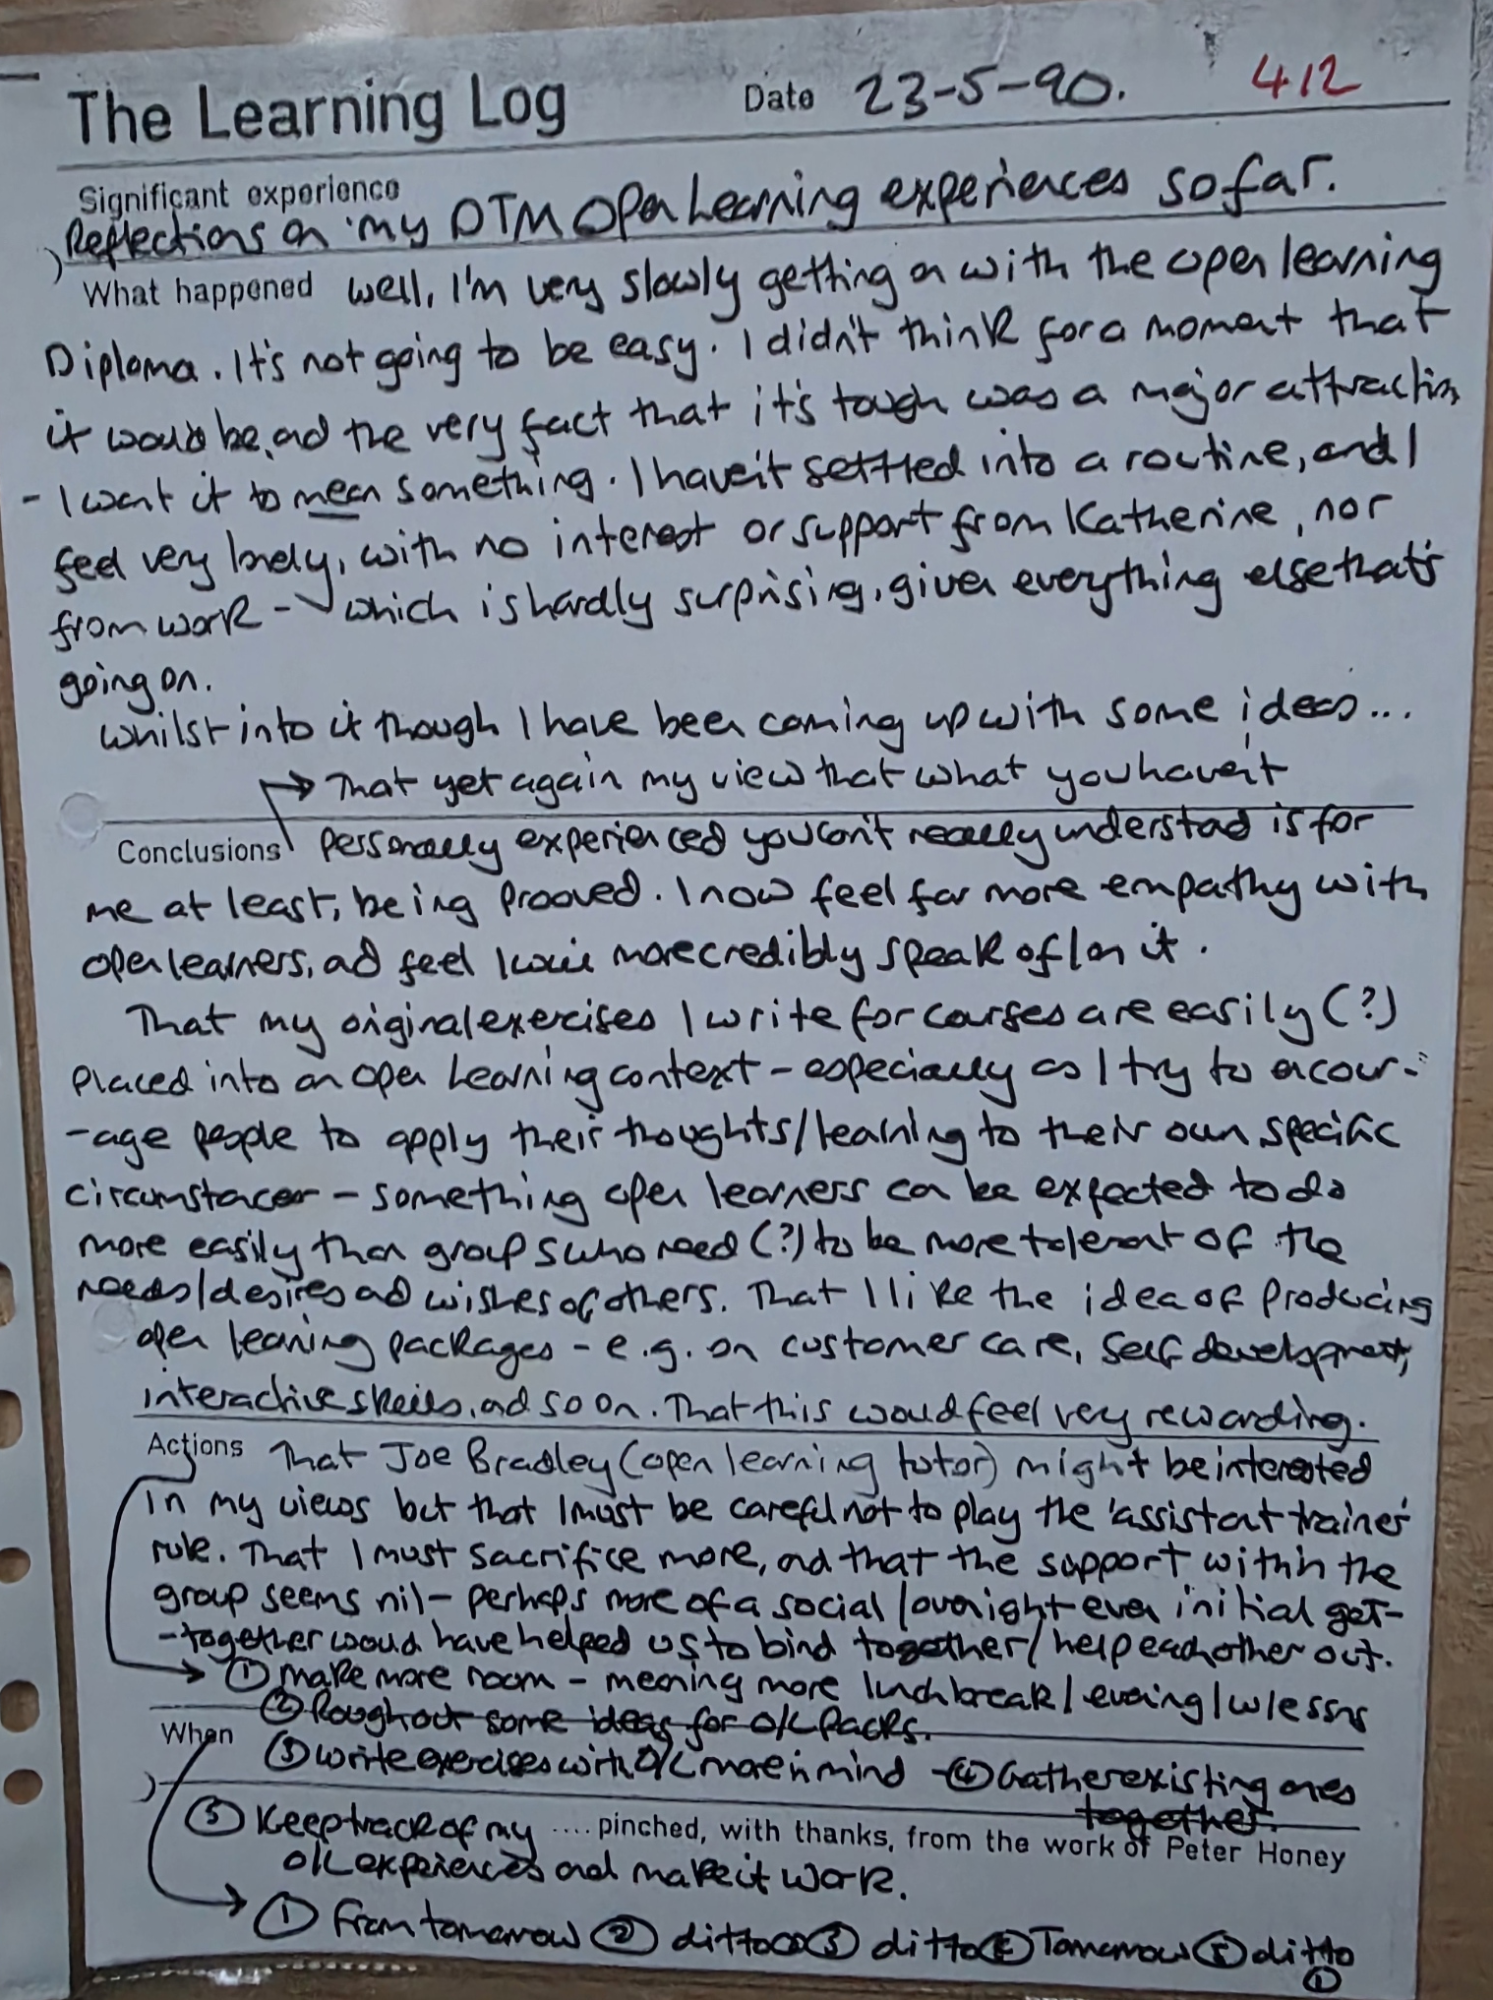 The Learning Log Date 23-5-90. 412
Significant experience
Reflections on my DTM Open Learning experiences so far.
What happened well, I'm very slowly getting on with the open learning
Diploma. It's not going to be easy. I didn't think for a moment that
it would be, and the very fact that it's tough was a major attraction
- I want it to mean something. I haven't settled into a routine, and I
feel very lonely, with no interest or support from Katherine, nor
from work - which is hardly surprising, given everything else that's
going on.
Whilst into it though I have been coming up with some ideas...
→ That yet again my view that what you haven't
Conclusions personally experienced you can't really understand is for
me at least, being prooved. I now feel far more empathy with
open learners, and feel I can more credibly speak of/on it.
That my original exercises I write for courses are easily (?)
placed into an open learning context - especially as I try to encour-
-age people to apply their thoughts/learning to their own specific
circumstances - something open learners can be expected to do
more easily than groups who need (?) to be more tolerant of the
needs/desires and wishes of others. That I like the idea of producing
open learning packages - e.g. on customer care, self development,
interactive skills, and so on. That this would feel very rewarding.
Actions That Joe Bradley (open learning tutor) might be interested
in my views but that I must be careful not to play the 'assistant trainer'
role. That I must sacrifice more, and that the support within the
group seems nil - perhaps more of a social/overnight even initial get-
-together would have helped us to bind together/help each other out.
→ ① make more room - meaning more lunchbreak/evening/w/e
② Rough out some ideas for O/L Packs.
When
③ write exercises with O/L more in mind - ④ Gather existing ones
together.
⑤ Keep track of my .... pinched, with thanks, from the work of Peter Honey
O/L experiences and make it work.
→ ① From tomorrow ② ditto ① ③ ditto ① ④ Tomorrow ⑤ ditto
①